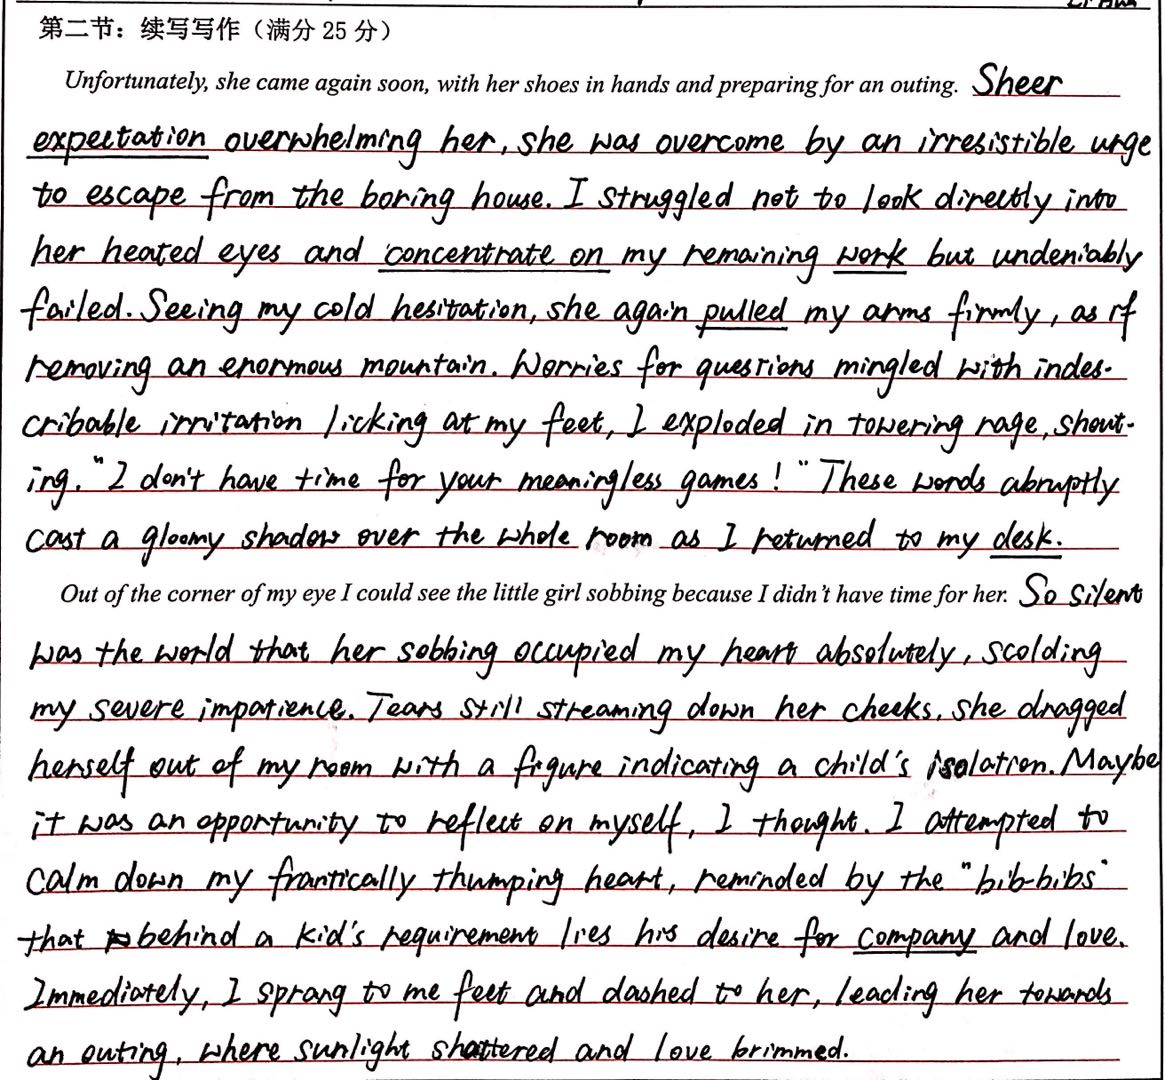 Li Hua
第二节：续写写作（满分 25 分）
Unfortunately, she came again soon, with her shoes in hands and preparing for an outing. Sheer
expectation overwhelming her, she was overcome by an irresistible urge
to escape from the boring house. I struggled not to look directly into
her heated eyes and concentrate on my remaining work but undeniably
failed. Seeing my cold hesitation, she again pulled my arms firmly, as if
removing an enormous mountain. Worries for questions mingled with indes-
cribable irritation licking at my feet, I exploded in towering rage, shout-
ing. "I don't have time for your meaningless games!" These words abruptly
cast a gloomy shadow over the whole room as I returned to my desk.
Out of the corner of my eye I could see the little girl sobbing because I didn't have time for her. So silent
was the world that her sobbing occupied my heart absolutely, scolding
my severe impatience. Tears still streaming down her cheeks, she dragged
herself out of my room with a figure indicating a child's isolation. Maybe
it was an opportunity to reflect on myself, I thought. I attempted to
calm down my frantically thumping heart, reminded by the "bib-bibs"
that behind a kid's requirement lies his desire for company and love.
Immediately, I sprang to me feet and dashed to her, leading her towards
an outing, where sunlight shattered and love brimmed.